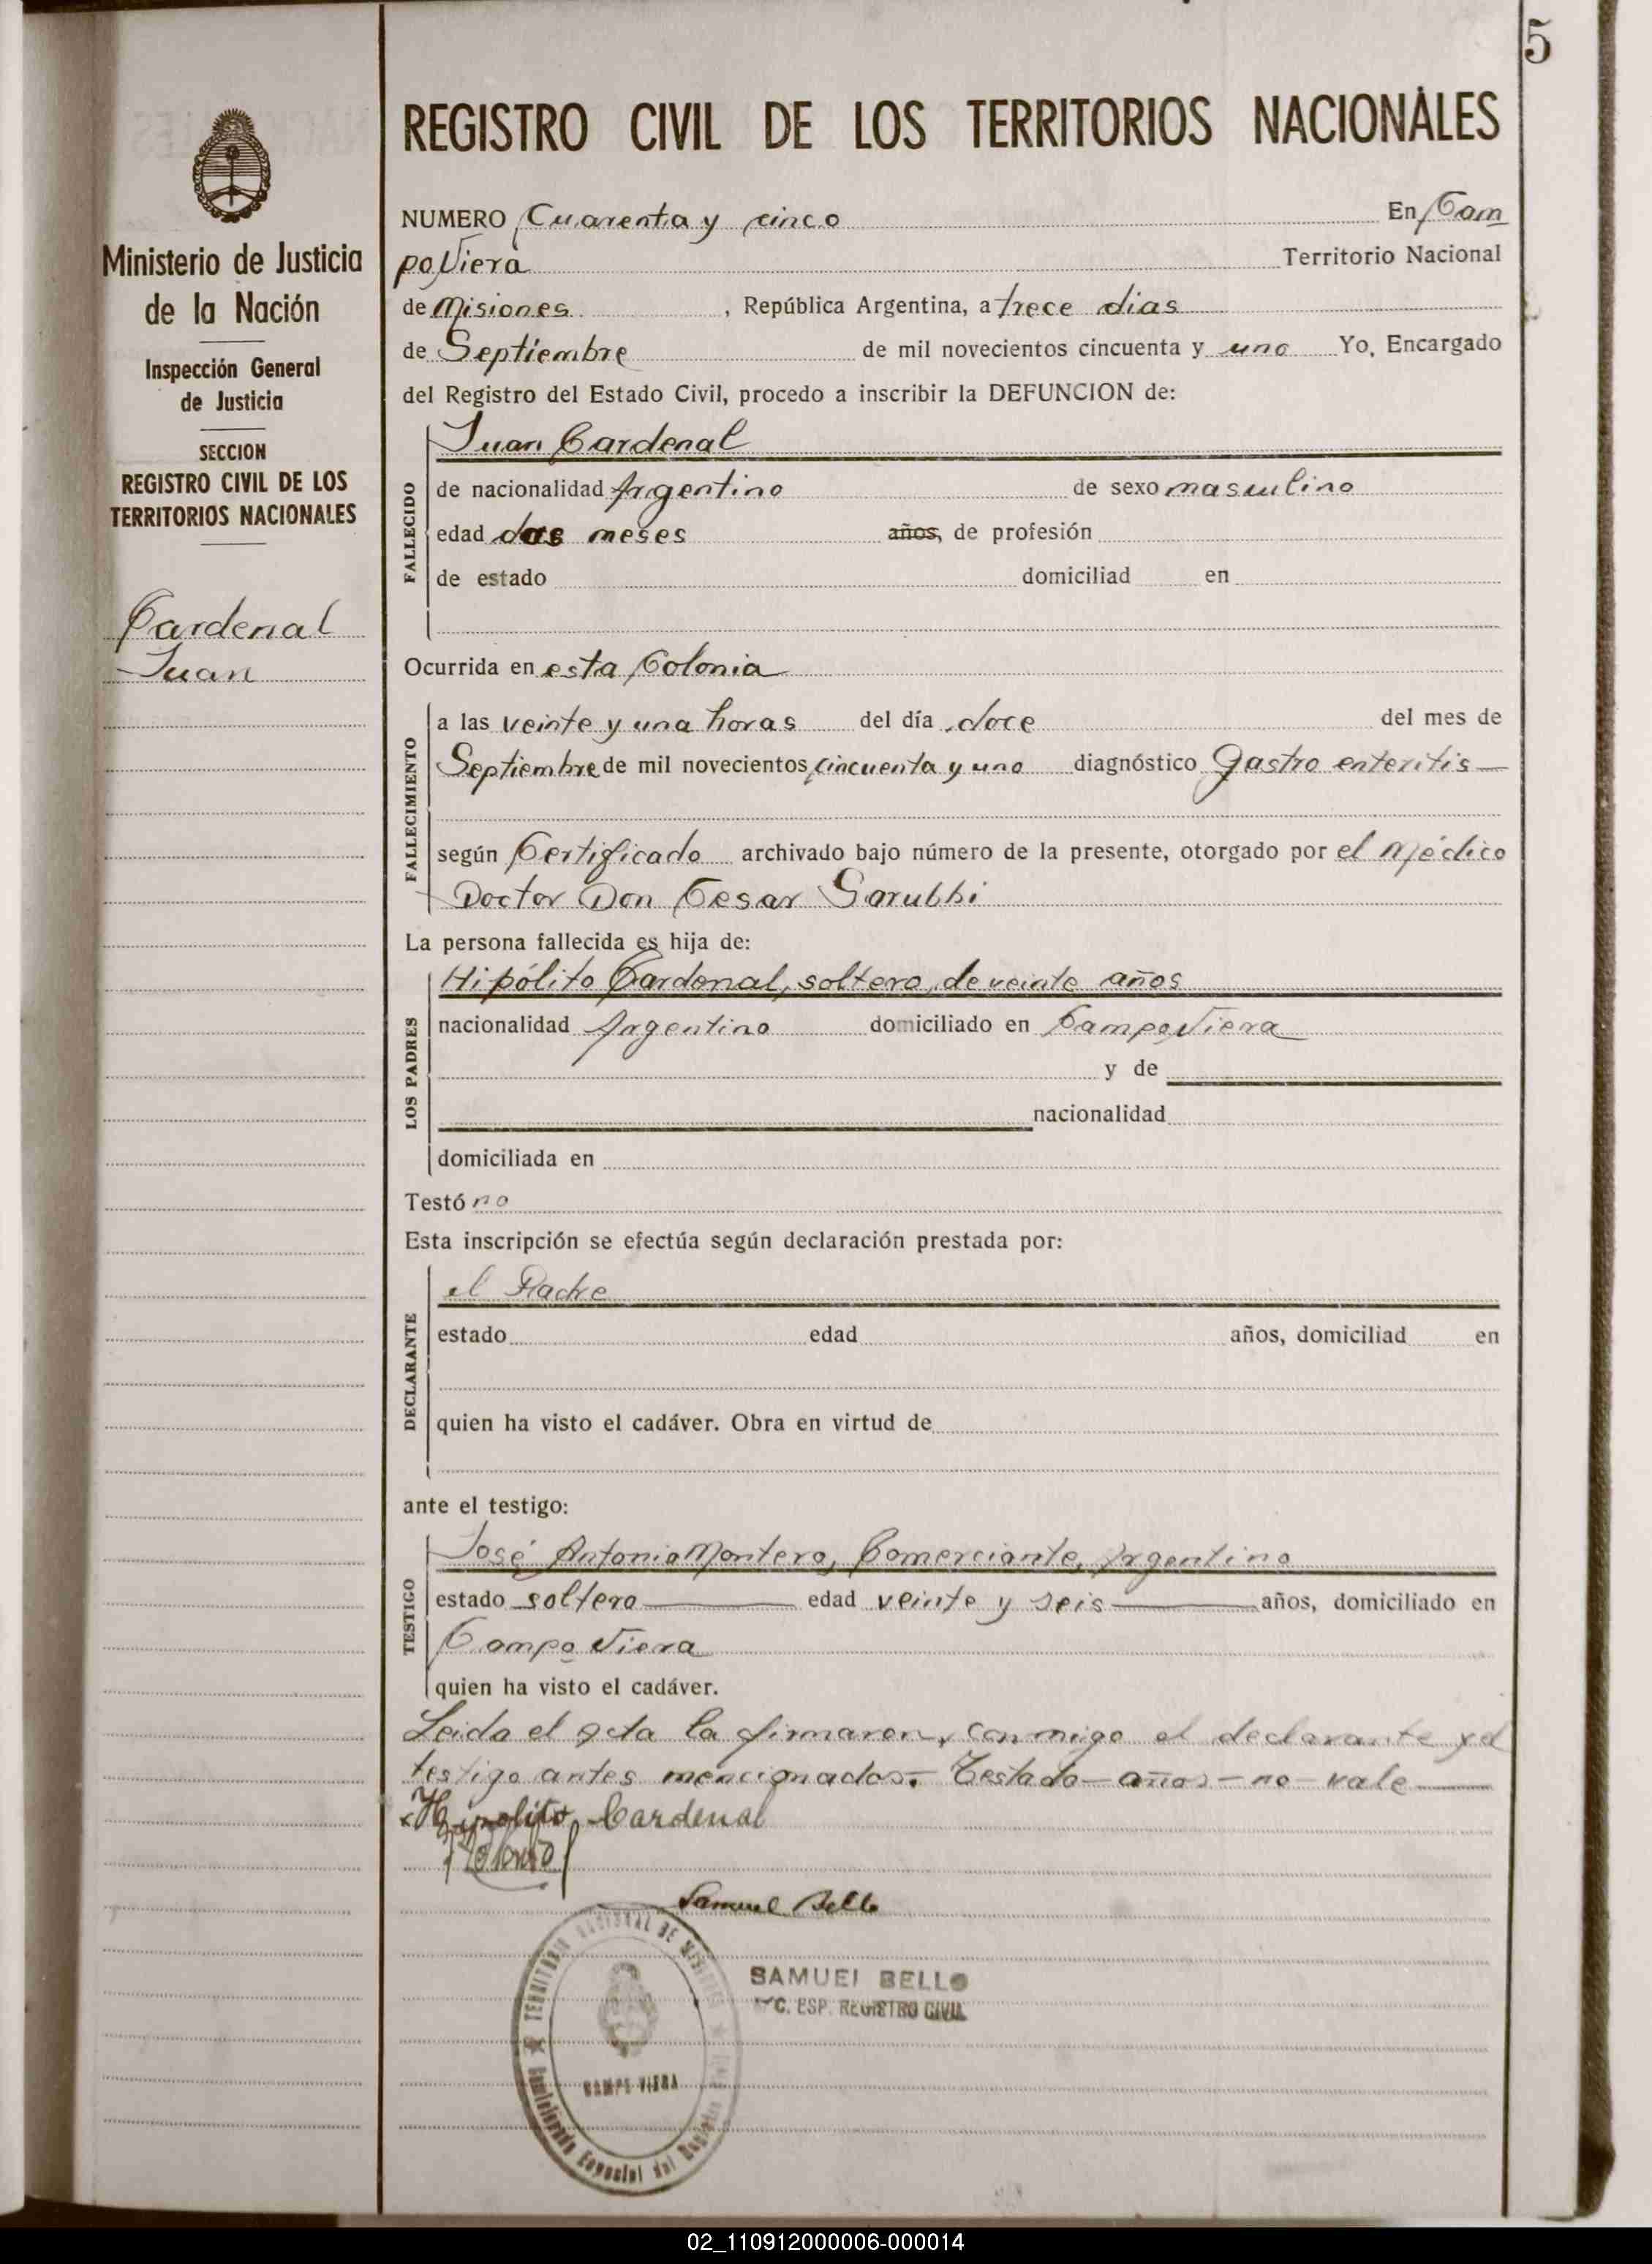 5
REGISTRO CIVIL DE LOS TERRITORIOS NACIONALES
Ministerio de Justicia
de la Nación
Inspección General
de Justicia
SECCION
REGISTRO CIVIL DE LOS
TERRITORIOS NACIONALES
Cardenal
Juan
NUMERO Cuarenta y cinco En Cam
po Viera Territorio Nacional
de Misiones, República Argentina, a trece dias
de Septiembre de mil novecientos cincuenta y uno Yo, Encargado
del Registro del Estado Civil, procedo a inscribir la DEFUNCION de:
FALLECIDO
Juan Cardenal
de nacionalidad Argentino de sexo masculino
edad dos meses años, de profesión
de estado domiciliad en
Ocurrida en esta Colonia
FALLECIMIENTO
a las veinte y una horas del día doce del mes de
Septiembre de mil novecientos cincuenta y uno diagnóstico Gastro enteritis
según Certificado archivado bajo número de la presente, otorgado por el Médico
Doctor Don Cesar Garubbi
La persona fallecida es hija de:
LOS PADRES
Hipólito Cardenal, soltero, de veinte años
nacionalidad Argentino domiciliado en Campo Viera
y de
nacionalidad
domiciliada en
Testó no
Esta inscripción se efectúa según declaración prestada por:
DECLARANTE
el Padre
estado edad años, domiciliad en
quien ha visto el cadáver. Obra en virtud de
ante el testigo:
TESTIGO
José Antonio Montero, Comerciante, Argentino
estado soltero edad veinte y seis años, domiciliado en
Campo Viera
quien ha visto el cadáver.
Leida el acta la firmaron, conmigo el declarante y el
testigo antes mencionados. Testado-años-no-vale
Hipolito Cardenal
Samuel Bello
TERRITORIO NACIONAL DE MISIONES
CAMPO VIERA
SAMUEL BELLO
ESP. REGISTRO CIVIL
02_110912000006-000014